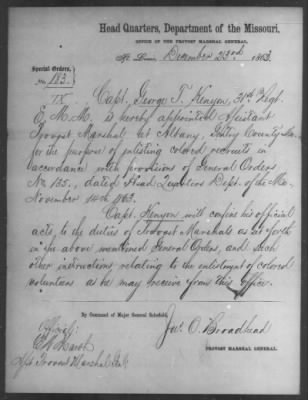 Head Quarters, Department of the Missouri.
OFFICE OF THE PROVOST MARSHAL GENERAL,
St. Louis, December 23rd, 1863.
Special Orders,
No. 183.
IX. Capt. George T. Kenyon, 31st Regt.
E. M. M. is hereby appointed Assistant
Provost Marshal at Albany, Gentry County Mo.
for the purpose of enlisting colored recruits in
accordance with provisions of General Orders
No 135., dated Head Quarters Dept. of the Mo.
November 14th 1863.
Capt. Kenyon will confine his official
acts, to the duties of Provost Marshals as set forth
in the above mentioned General Orders, and such
other instructions relating to the enlistment of colored
volunteers as he may receive from this office.
By Command of Major General Schofield,
Official:
Jas. O. Broadhead
PROVOST MARSHAL GENERAL.
Asst Provost Marshal Genl.